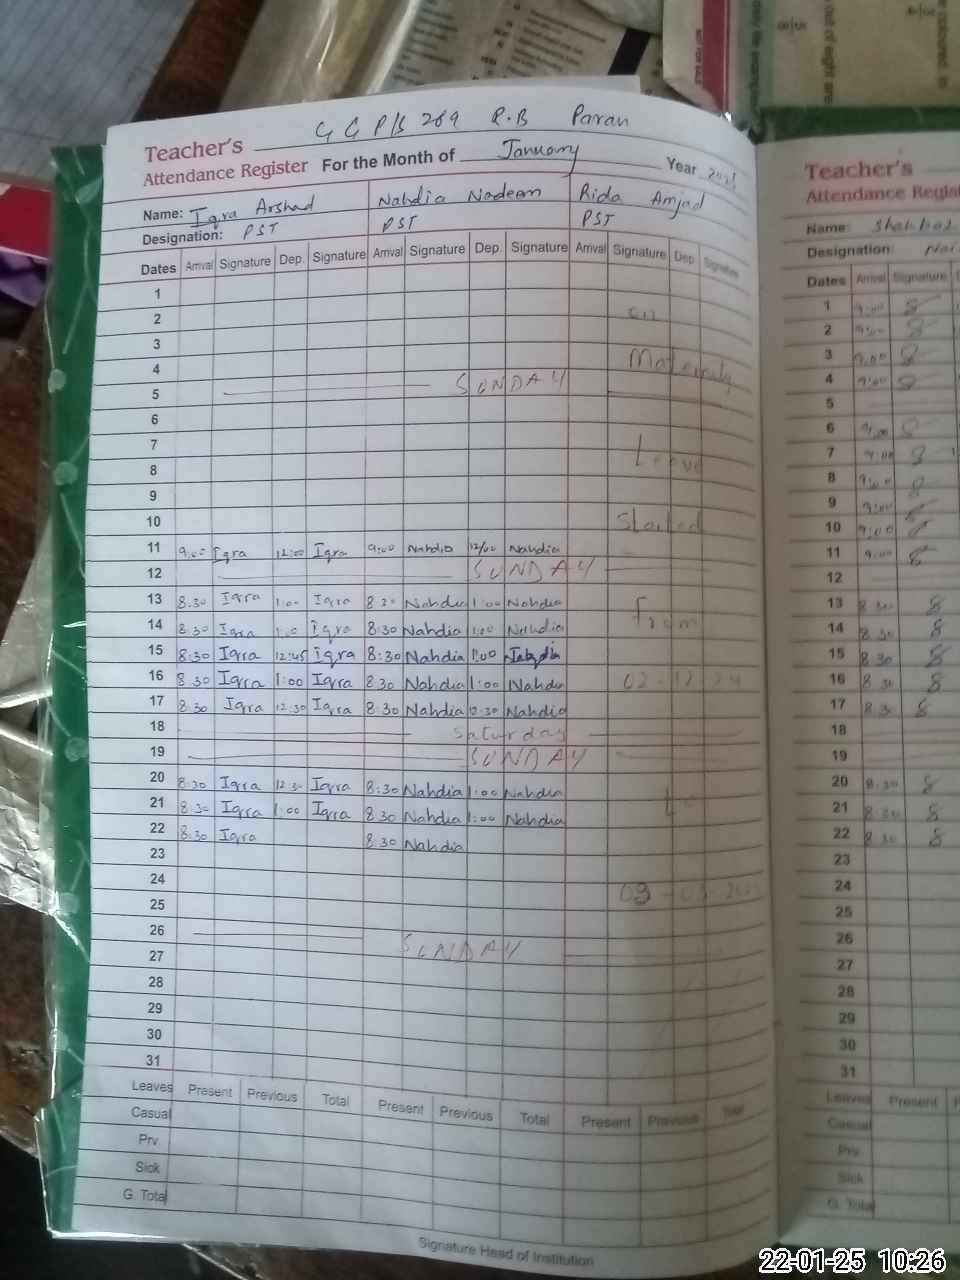 Teacher's G G P/S 269 R.B Paran
Attendance Register For the Month of January Year 2025
Name: Iqra Arshad Nahdia Nadeem Rida Amjad
Designation: PST PST PST
Dates Arrival Signature Dep. Signature Arrival Signature Dep. Signature Arrival Signature Dep Signature
1
2 on
3
4 Maternity
5 SUNDAY
6
7
8 Leave
9
10 Started
11 9:00 Iqra 12:00 Iqra 9:00 Nahdia 12/00 Nahdia
12 SUNDAY
13 8:30 Iqra 1:00 Iqra 8:30 Nahdia 1:00 Nahdia
14 8:30 Iqra 1:00 Iqra 8:30 Nahdia 1:00 Nahdia From
15 8:30 Iqra 12:45 Iqra 8:30 Nahdia 1:00
16 8:30 Iqra 1:00 Iqra 8:30 Nahdia 1:00 Nahdia 02-12-24
17 8:30 Iqra 12:30 Iqra 8:30 Nahdia 12:30 Nahdia
18 Saturday
19 SUNDAY
20 8:30 Iqra 12:30 Iqra 8:30 Nahdia 1:00 Nahdia
21 8:30 Iqra 1:00 Iqra 8:30 Nahdia 1:00 Nahdia to
22 8:30 Iqra 8:30 Nahdia
23
24 09-03-2025
25
26 SUNDAY
27
28
29
30
31
Leaves Present Previous Total Present Previous Total Present Previous Total
Casual
Prv.
Sick
G. Total
Signature Head of Institution
Teacher's
Attendance Regis
Name: Shahbaz
Designation:
Dates Arrival Signature
1 9:00 8
2 9:00 8
3 9:00 8
4 9:00 8
5
6 9:00 8
7 9:00 8
8 9:00 8
9 9:00 8
10 9:00 8
11 9:00 8
12
13 8:30 8
14 8:30 8
15 8:30 8
16 8:30 8
17 8:30 8
18
19
20 8:30 8
21 8:30 8
22 8:30 8
23
24
25
26
27
28
29
30
31
Leaves Present
Casual
Prv.
Sick
G. Total
22-01-25 10:26